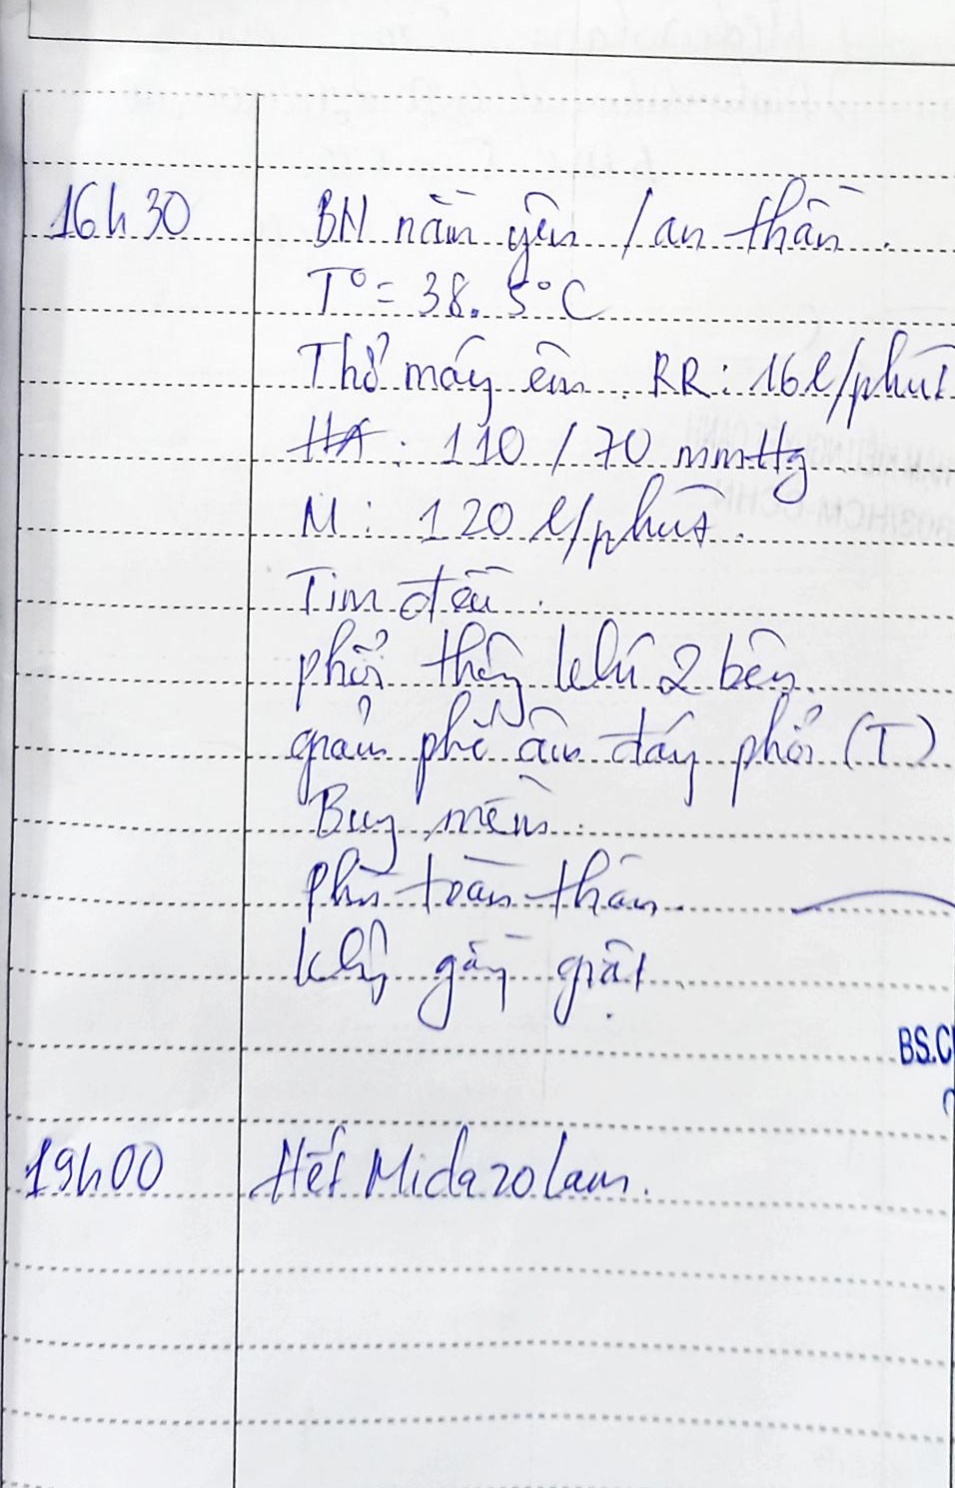 16h30 BN nằm yên / an thần.
T° = 38.5°C
Thở máy êm. RR: 16l/phút
HA: 110 / 70 mmHg
M: 120 l/phút.
Tim đều.
phổi thông khí 2 bên.
giảm phế âm đáy phổi (T)
Bụng mềm.
Phù toàn thân.
Không gồng giật.
BS.C
19h00 Hết Midazolam.